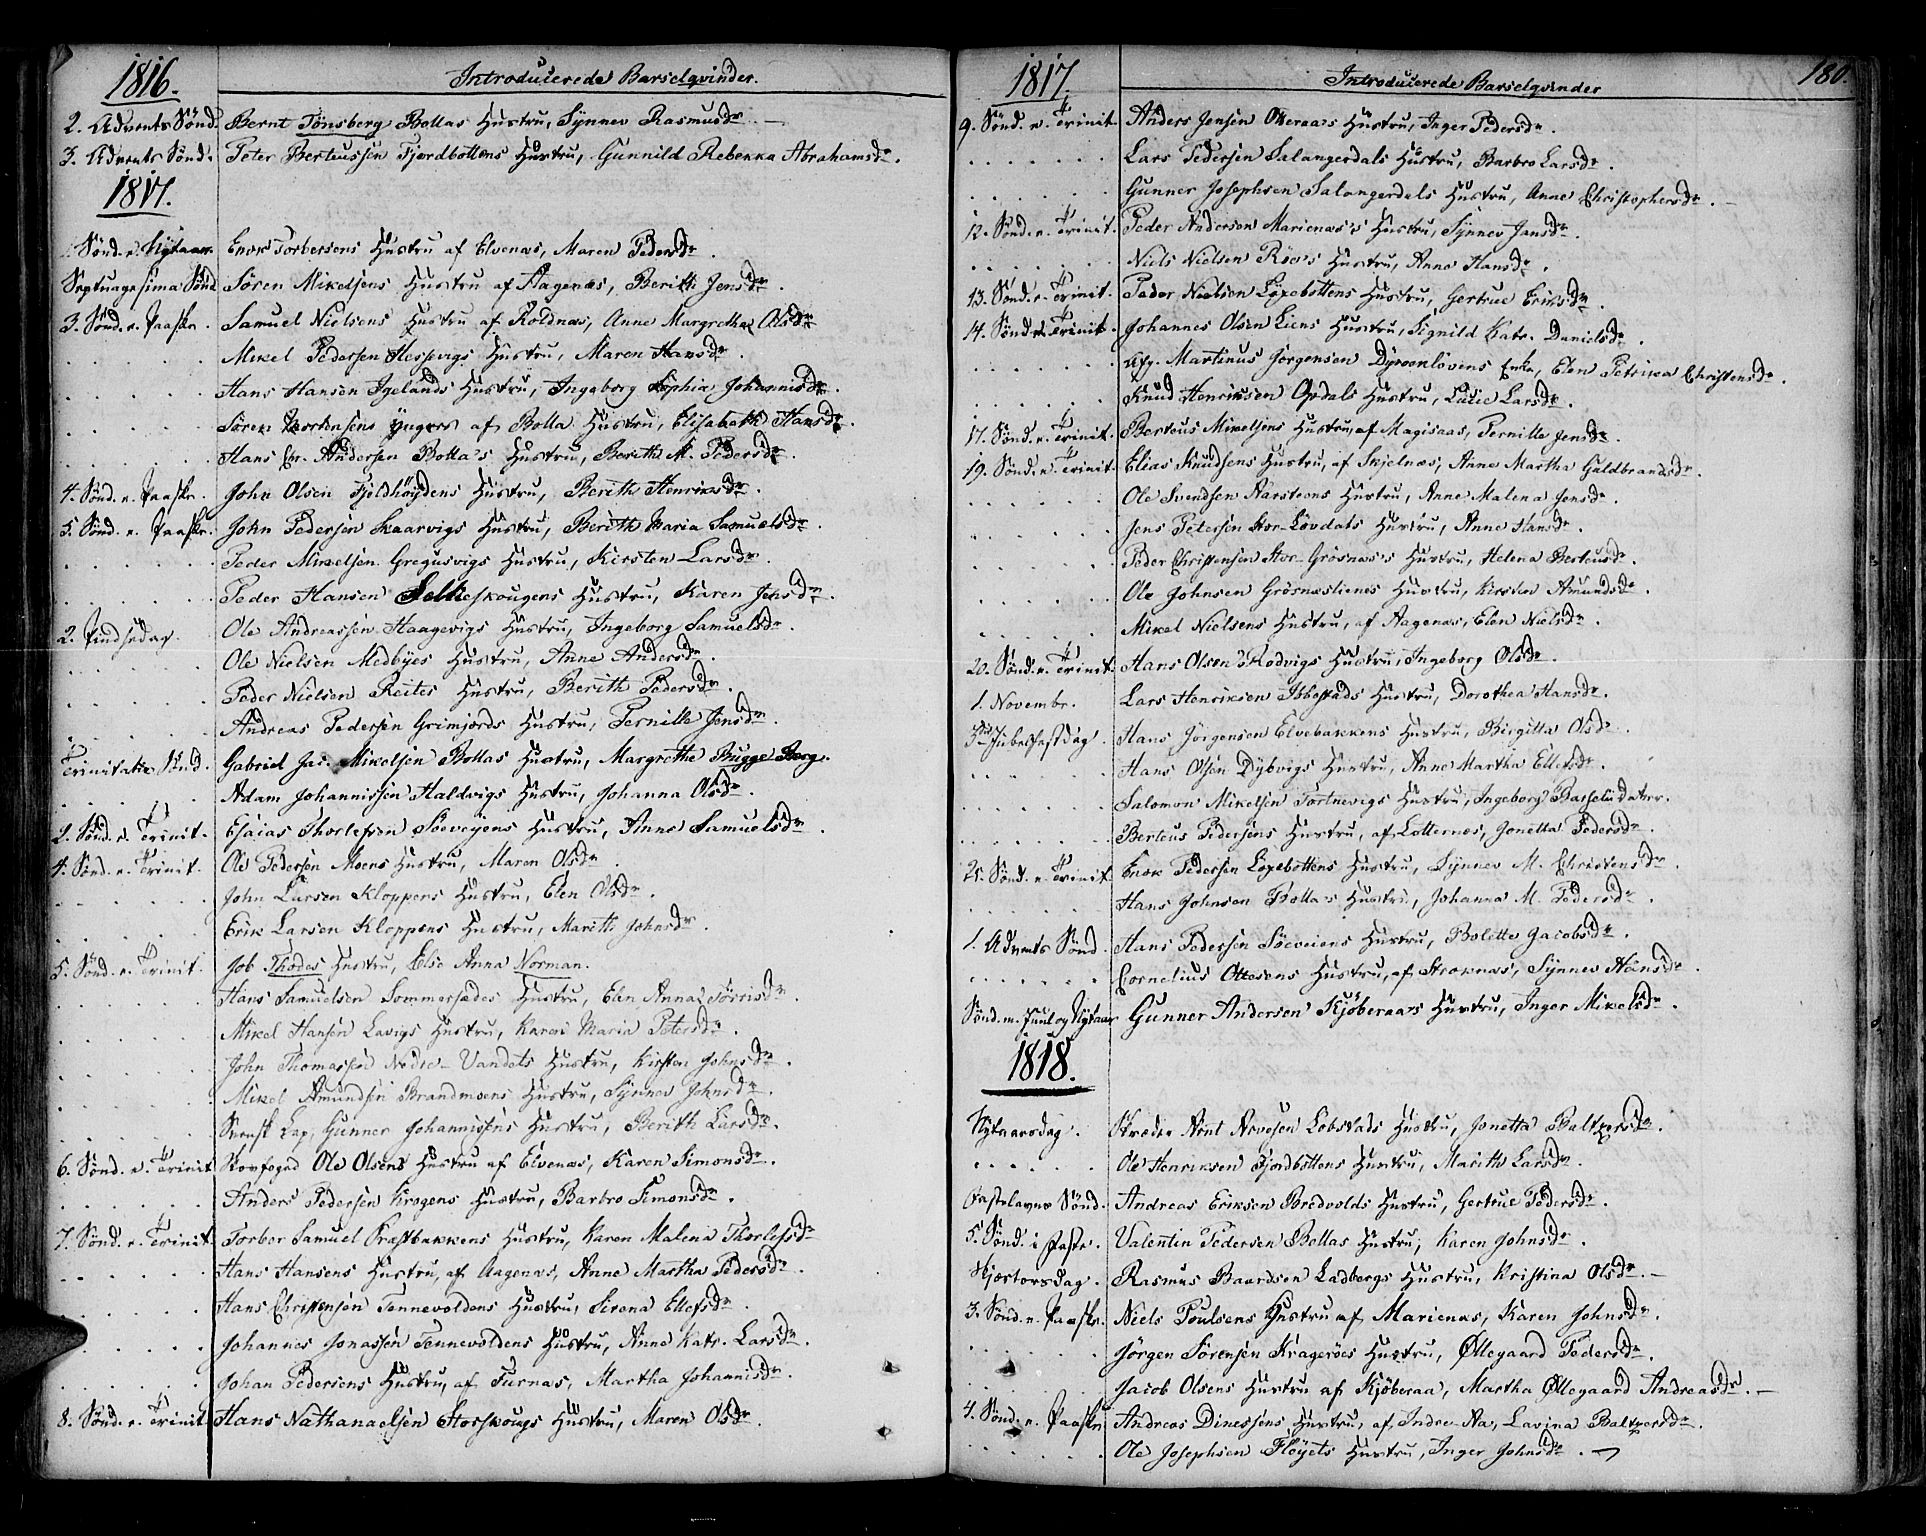 1816. Introducerede Barselqvinder.
2. Advents Sönd. Bernt Tönsberg Bollas Hustru, Synnev Rasmusdr. —
3. Advents Sönd. Peter Berteussen Fjordbottens Hustru, Gunnild Rebekka Abrahamsdr.
1817.
Sönd. e. Nytaar. Enok Torbersens Hustru af Elvenæs, Maren Pedersdr.
Septuagesima Sönd. Sören Mikelsens Hustru af Aagenæs, Berith Jensdr.
3. Sönd. e. Paaske. Samuel Nielsens Hustru af Roldnæs, Anne Margretha Olsdr.
Mikel Pedersen Hessevigs Hustru, Maren Hansdr.
Hans Hansen Igelands Hustru, Ingeborg Sophia Johannisdr.
Sören Mortensens Yngers af Bolla Hustru, Elisabeth Hansdr.
Hans Chr. Andersen Bolla's Hustru, Berith M. Pedersdr.
4. Sönd. e. Paaske. John Olsen Fjeldhöydens Hustru, Berith Henriksdr.
5. Sönd. e. Paaske. John Pedersen Skaarvigs Hustru, Berith Maria Samuelsdr.
Peder Mikelsen Gregusvigs Hustru, Kirsten Larsdr.
Peder Hansen Selkeskougens Hustru, Karen Jensdr.
2. Pindsedag. Ole Andreassen Haagevigs Hustru, Ingeborg Samuelsdr.
Ole Nielsen Medbyes Hustru, Anne Andersdr.
Peder Nielsen Reites Hustru, Berith Pedersdr.
Andreas Pedersen Grimjords Hustru, Pernille Jensdr.
Trinitatis Sönd. Gabriel Jac. Mikelsen Bollas Hustru, Margrethe Bugge Berg.
Adam Johannissen Haldvigs Hustru, Johanna Olsdr.
2. Sönd. e. Trinit. Esaias Thorlefsen Söeveyens Hustru, Anne Samuelsdr.
4. Sönd. e. Trinit. Ole Pedersen Moens Hustru, Maren Olsdr.
John Larsen Kloppens Hustru, Elen Olsdr.
Erik Larsen Kloppens Hustru, Marith Johnsdr.
5. Sönd. e. Trinit. Job Thodes Hustru, Else Anna Norman.
Hans Samuelsen Sommersædes Hustru, Elen Anna Törrisdr.
Mikel Hansen Lavigs Hustru, Karen Maria Petersdr.
John Thomassen Nedre-Vandets Hustru, Kirsten Johnsdr.
Mikel Amundsen Brandmoens Hustru, Synnev Johnsdr.
Svensk Lap, Gunner Johannissens Hustru, Berith Larsdr.
6. Sönd. e. Trinit. Skovfoged Ole Olsens Hustru af Elvenæs, Karen Simonsdr.
Anders Pedersen Krogens Hustru, Barbro Simonsdr.
7. Sönd. e. Trinit. Torber Samuel Præstbakkens Hustru, Karen Malena Thorlefsdr.
Hans Hansens Hustru, af Aagenæs, Anne Martha Pedersdr.
Hans Christensen Tennevoldens Hustru, Sirena Ellefsdr.
Johannes Jonassen Tennevoldens Hustru, Anne Katr. Larsdr.
Johan Pedersens Hustru, af Turnæs, Martha Johannisdr.
8. Sönd. e. Trinit. Hans Nathanaelsen Storskougs Hustru, Maren Olsdr.
1817. Introducerede Barselqvinder 180.
9. Sönd. e. Trinit. Anders Jensen Oteraa's Hustru, Inger Pedersdr.
Lars Pedersen Salangerdals Hustru, Barbro Larsdr.
Gunner Josephsen Salangerdals Hustru, Anne Christophersdr. —
12. Sönd. e. Trinit. Peder Andersen Marienæs's Hustru, Synnev Jonsdr.
Niels Nielsen Röe's Hustru, Anne Hansdr.
13. Sönd. e. Trinit. Peder Nielsen Löxebottens Hustru, Gertrue Eriksdr.
14. Sönd. e. Trinit. Johannes Olsen Liens Hustru, Signild Katr. Danielsdr.
Afg. Martinus Jörgensen Dyroenlövens Enke, Elen Petrika Christensdr.
Knud Henriksen Opdals Hustru, Lucie Larsdr.
17. Sönd. e. Trinit. Berteus Mikelsens Hustru, af Magisaas, Pernille Jensdr.
19. Sönd. e. Trinit. Elias Knudsens Hustru, af Skjelnæs, Anne Martha Guldbrandsdr.
Ole Svendsen Aarsteens Hustru, Anne Malena Jensdr.
Jens Petersen Stor-Lövdals Hustru, Anne Hansdr.
Peder Christensen Stor-Grösnæs's Hustru, Helena Berteusdr.
Ole Johnsen Grösnæslienes Hustru, Kirsten Amundsdr.
Mikel Nielsens Hustru, af Aagenæs, Elen Nielsdr.
20. Sönd. e. Trinit. Hans Olsen Rodvigs Hustru, Ingeborg Olsdr.
1. Novembr. Lars Henriksen Ibbestads Hustru, Dorothea Hansdr.
3die Jubelfestdag. Hans Jörgensen Elvebakkens Hustru, Birgitta Olsdr.
Hans Olsen Dybvigs Hustru, Anne Martha Ellefsdr.
Salomon Mikelsen Tortnevigs Hustru, Ingeborg Basseludatter.
Berteus Pedersens Hustru, af Lotternæs, Jonetta Pedersdr.
25. Sönd. e. Trinit. Enok Pedersen Löxebottens Hustru, Synnev M. Christensdr.
Hans Johnsen Bolla's Hustru, Johanna M. Pedersdr.
1. Advents Sönd. Hans Pedersen Söeveiens Hustru, Bolette Jacobsdr.
Cornelius Ottesens Hustru, af Stroknæs, Synnev Hansdr.
Sönd. m. Juul og Nytaar Gunner Andersen Kjöberaa's Hustru, Inger Mikelsdr.
1818.
Nytaarsdag. Skræder Arnt Arnesen Lobstads Hustru, Jonetta Baltzersdr.
Ole Henriksen Fjordbottens Hustru, Marith Larsdr.
Fastelavns Sönd. Andreas Eriksen Bredvolds Hustru, Gertrue Pedersdr.
5. Sönd. i Faste. Valentin Pedersen Bollas Hustru, Karen Johnsdr.
Skjærtorsdag. Rasmus Baardsen Ladbergs Hustru, Kristina Olsdr. —
3. Sönd. e. Paaske. Niels Poulsens Hustru af Marienæs, Karen Johnsdr.
Jörgen Sörensen Krageröes Hustru, Øllegaard Pedersdr.
Jacob Olsens Hustru af Kjöberaa, Martha Øllegaard Andreasdr. —
4. Sönd. e. Paaske Andreas Dinessens Hustru, af Indre-Aa, Lavina Baltzersdr.
Ole Josephsen Flöyets Hustru, Inger Johnsdr. —